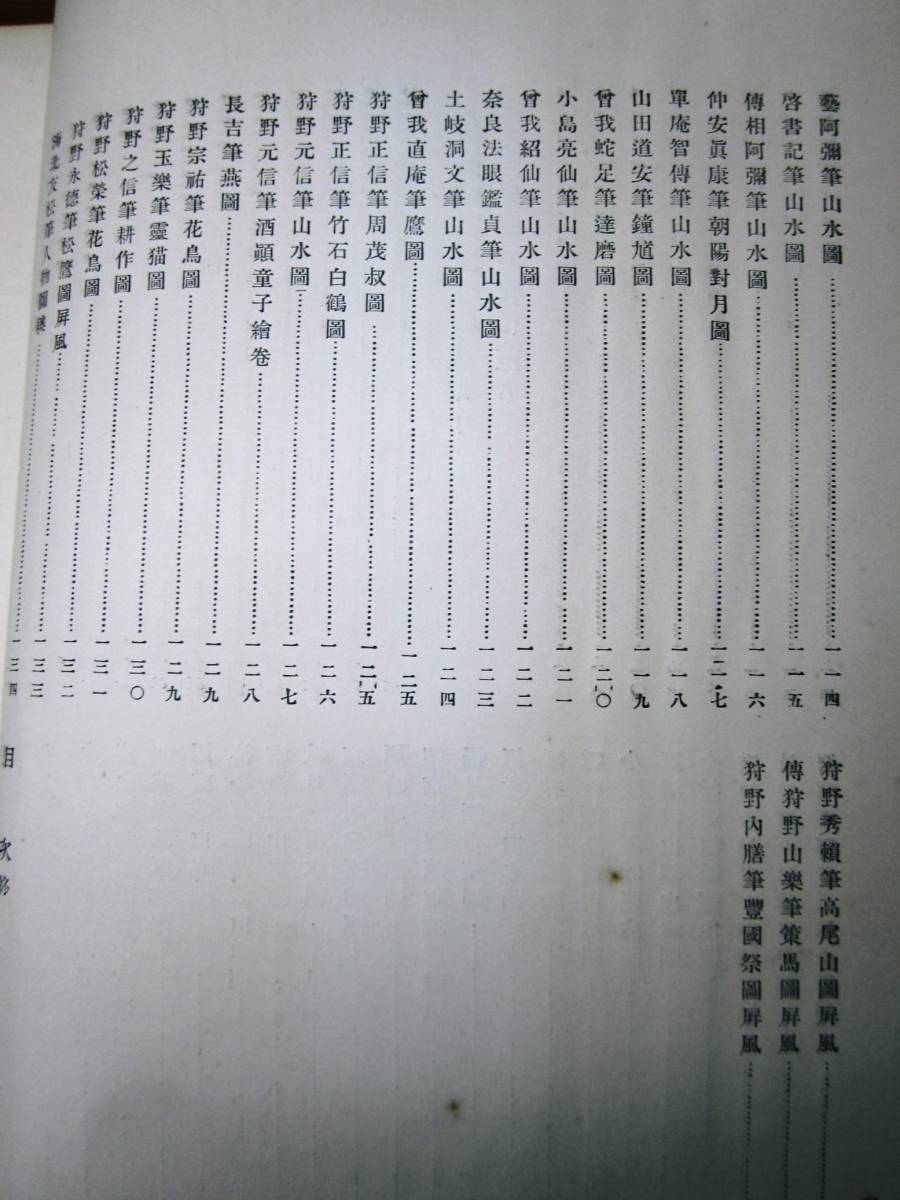 藝阿彌筆山水圖……一一四
啓書記筆山水圖……一一五
傳相阿彌筆山水圖……一一六
仲安眞康筆朝陽對月圖……一二七
單庵智傳筆山水圖……一一八
山田道安筆鐘馗圖……一一九
曾我蛇足筆達磨圖……一二〇
小島亮仙筆山水圖……一二一
曾我紹仙筆山水圖……一二二
奈良法眼鑑貞筆山水圖……一二三
土岐洞文筆山水圖……一二四
曾我直庵筆鷹圖……一二五
狩野正信筆周茂叔圖……一二五
狩野正信筆竹石白鶴圖……一二六
狩野元信筆山水圖……一二七
狩野元信筆酒顚童子繪卷……一二八
長吉筆燕圖……一二九
狩野宗祐筆花鳥圖……一二九
狩野玉樂筆靈猫圖……一三〇
狩野之信筆耕作圖……一三一
狩野松榮筆花鳥圖……一三二
狩野永德筆松鷹圖屏風……一三三
海北友松筆人物圖……一三四
狩野秀賴筆高尾山圖屏風……
傳狩野山樂筆策馬圖屏風……
狩野內膳筆豐國祭圖屏風……
目次